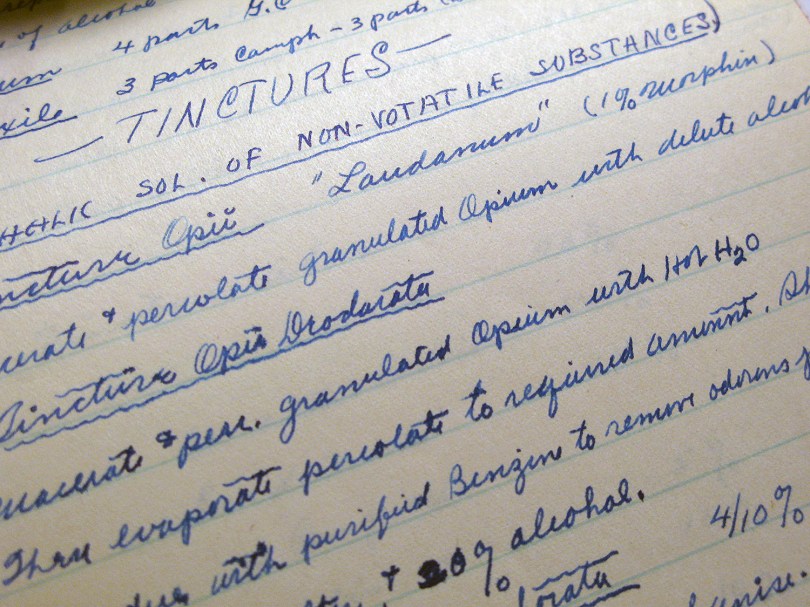 of alcohol
4 parts
3 parts Camph - 3 parts
— TINCTURES —
SOL. OF NON-VOTATILE SUBSTANCES)
Opii "Laudanum" (1% Morphin)
& percolate granulated Opium with delute
Tincture Opii Deodorata
macerate & perc. granulated Opium with Hot H2O
Then evaporate percolate to required amount.
with purified Benzin to remove odorous
+ 20% alcohol.
4/10%